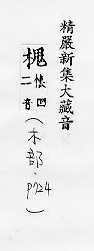 精嚴新集大藏音
槐 懷回二音（木部．P724）